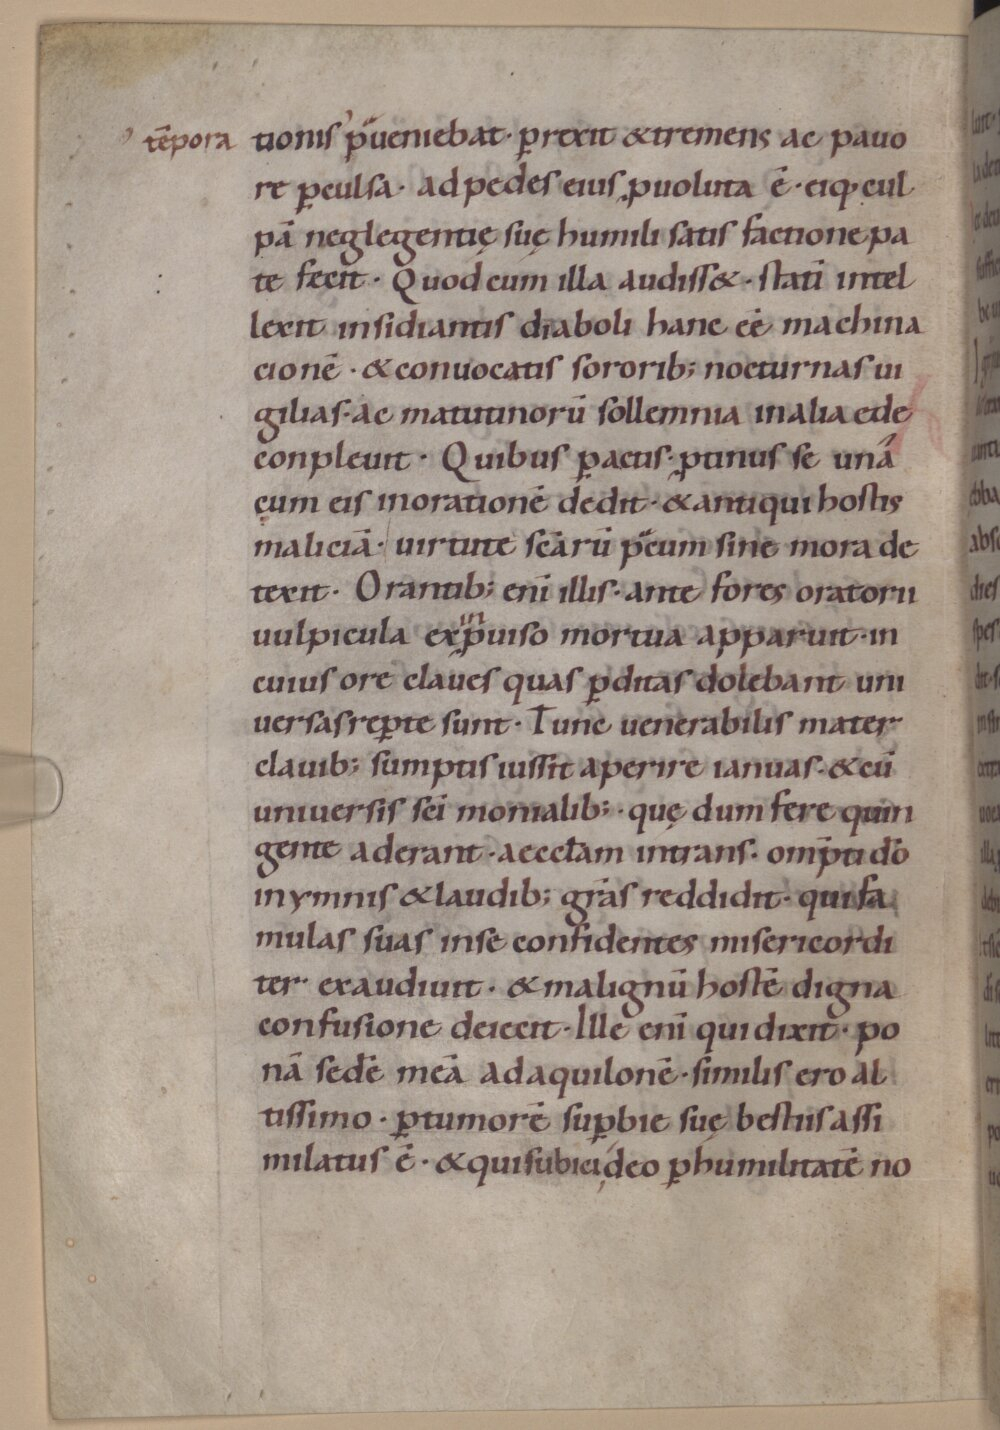 tēpora tionis p̄ueniebat · p̱rexit & tremens ac pauo
re p̱culsa · ad pedes eius ꝓuoluta ē · eiq; cul
pā neglegentię suę humili satisfactione pa
te fecit · Quod cum illa audiss& · statī intel
lexit insidiantis diaboli hanc eē machina
cionē · & conuocatis sororib; nocturnas ui
gilias · ac matutinorū sollemnia in alia ede
conpleuit · Quibus ꝑactis · ꝓtinus se unā
cum eis in orationē dedit · & antiqui hostis
maliciā · uirtute scārū p̄cum sine mora de
texit · Orantib; enī illis · ante fores oratorii
uulpicula ex inꝓuiso mortua apparuit · in
cuius ore claues quas ꝑditas dolebant uni
uersas reꝑte sunt · Tunc uenerabilis mater
clauib; sumptis iussit aperire ianuas · & cū
uniuersis sc̄i monialib; · quę dum fere quin
gente aderant · aecctam intrans · omp̄ti dō
in ymnis & laudib; grās reddidit · qui fa
mulas suas in se confidentes misericordi
ter exaudiuit · & malignū hostē digna
confusione deiecit · Ille enī qui dixit · po
nā sedē meā ad aquilonē · similis ero al
tissimo · ꝑ tumorē suꝑbie suę bestiis assi
milatus ē · & qui subici deo ꝑ humilitatē no